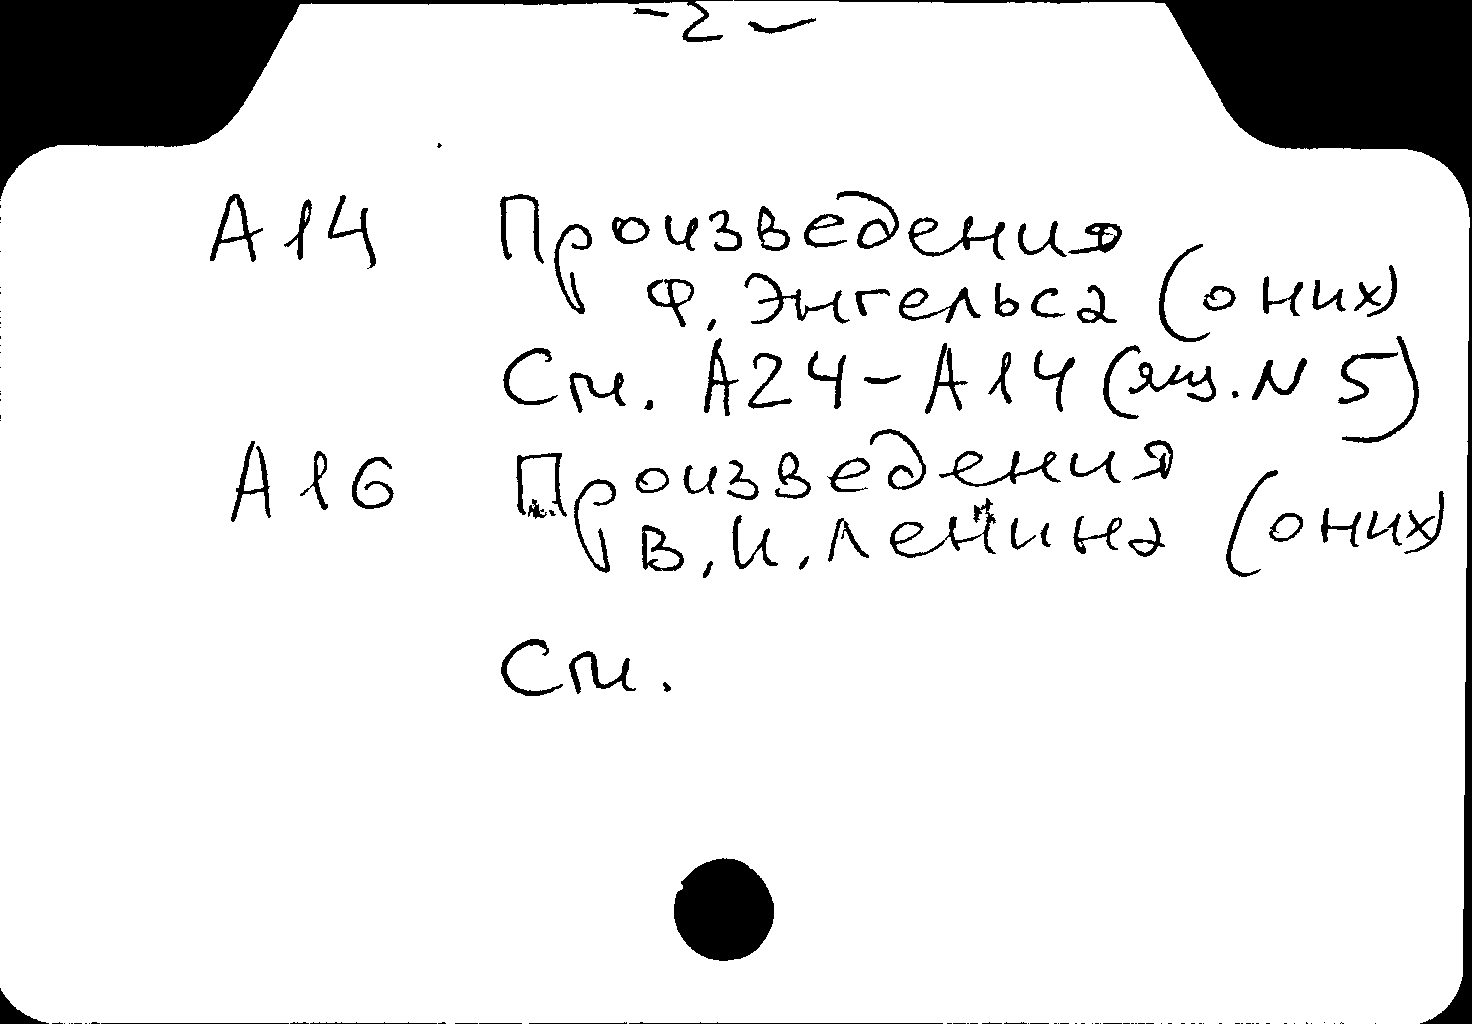 - 2 -
А14 Произведения
Ф. Энгельса (о них)
См. А24-А14 (ящ. N 5)
А16 Произведения
В. И. Ленина (о них)
См.